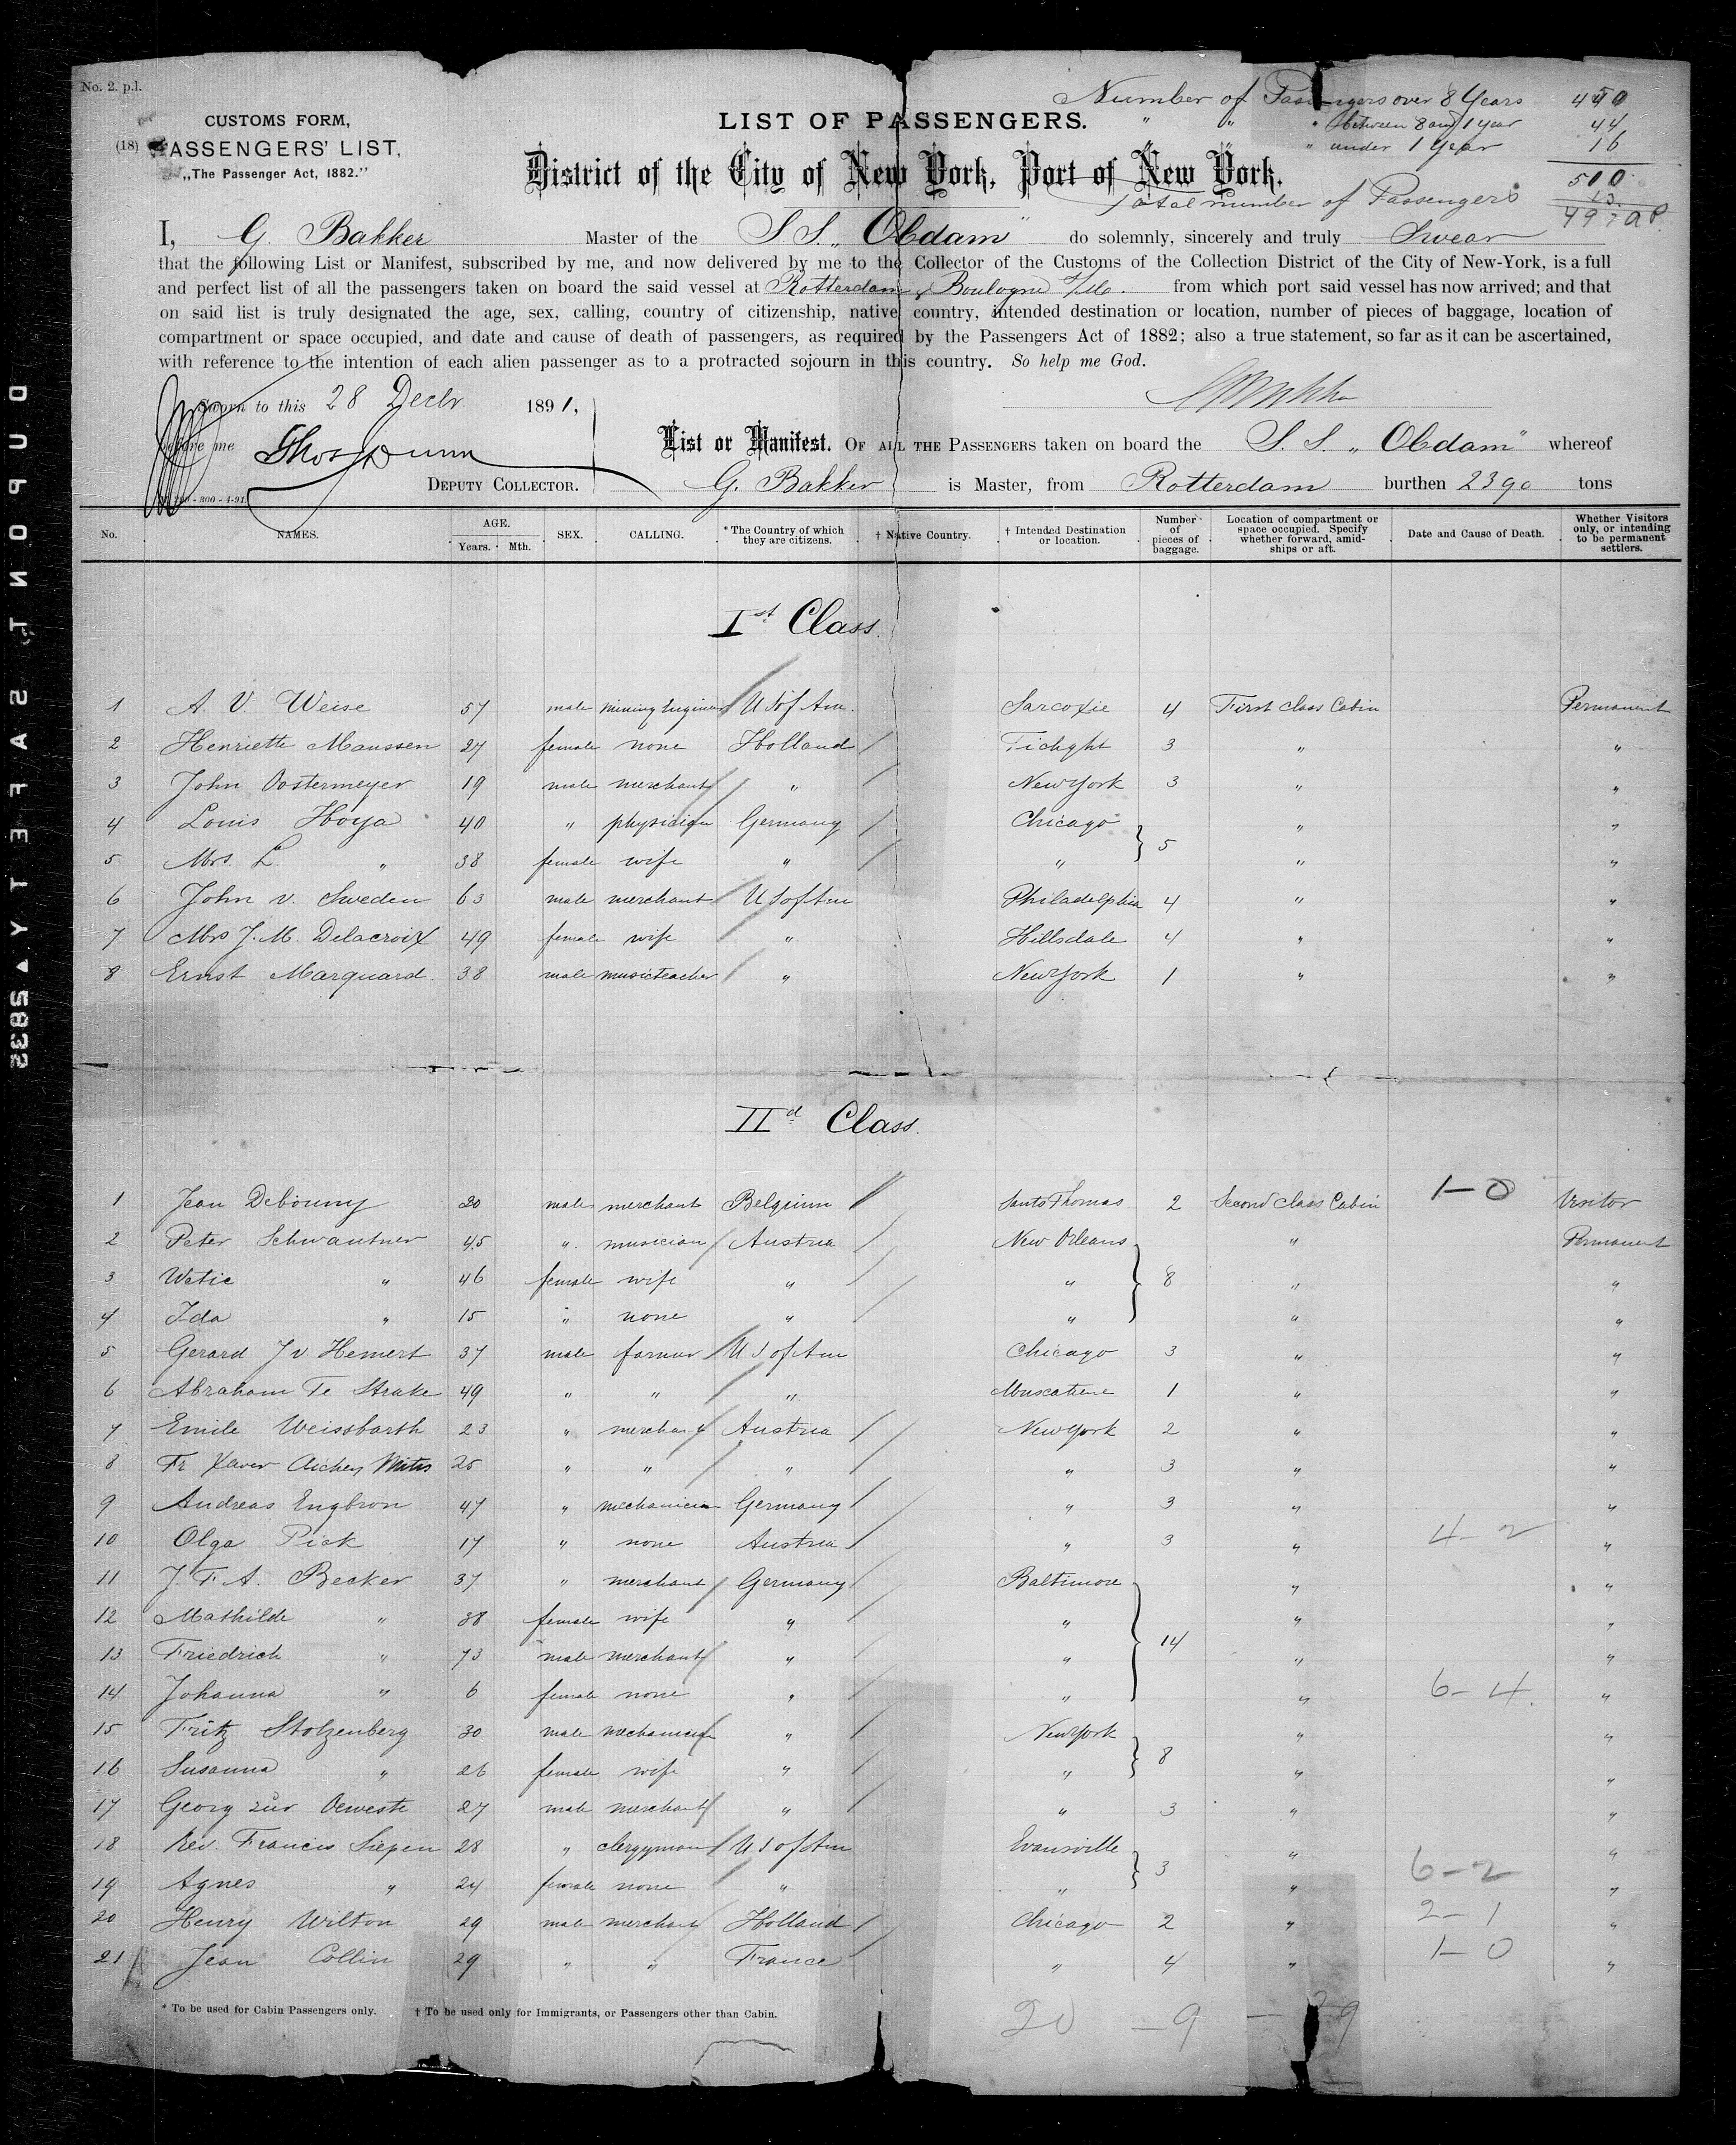 No. 2. p.l.
CUSTOMS FORM,
(18) PASSENGERS' LIST,
„The Passenger Act, 1882."
LIST OF PASSENGERS.
Number of Passengers over 8 Years 440
" " " between 8 and 1 year 44
" under 1 Year 16
500
Total number of Passengers
District of the City of New York, Port of New York.
I, G. Bakker Master of the S.S. „Obdam" do solemnly, sincerely and truly Swear
that the following List or Manifest, subscribed by me, and now delivered by me to the Collector of the Customs of the Collection District of the City of New-York, is a full
and perfect list of all the passengers taken on board the said vessel at Rotterdam & Boulogne from which port said vessel has now arrived; and that
on said list is truly designated the age, sex, calling, country of citizenship, native country, intended destination or location, number of pieces of baggage, location of
compartment or space occupied, and date and cause of death of passengers, as required by the Passengers Act of 1882; also a true statement, so far as it can be ascertained,
with reference to the intention of each alien passenger as to a protracted sojourn in this country. So help me God.
Sworn to this 28 Decbr. 1891,
before me Thos Dunn
DEPUTY COLLECTOR.
List or Manifest. OF ALL THE PASSENGERS taken on board the S. S. „Obdam" whereof
G. Bakker is Master, from Rotterdam burthen 2390 tons
No. NAMES. AGE. Years. Mth. SEX. CALLING. * The Country of which they are citizens. † Native Country. † Intended Destination or location. Number of pieces of baggage. Location of compartment or space occupied. Specify whether forward, amidships or aft. Date and Cause of Death. Whether Visitors only, or intending to be permanent settlers.
Ist Class.
1 A. V. Weise 57 male mining Engineer U S of Am. Sarcoxie 4 First class Cabin Permanent
2 Henriette Maussen 27 female none Holland 3 " "
3 John Oostermeyer 19 male merchant " New York 3 " "
4 Louis Hoya 40 " physician Germany Chicago 5 " "
5 Mrs. L. " 38 female wife " " " "
6 John v. Sweden 63 male merchant U S of Am Philadelphia 4 " "
7 Mrs J. M. Delacroix 49 female wife " Hillsdale 4 " "
8 Ernst Marquard 38 male musicteacher " New York 1 " "
IId Class.
1 Jean Debouny 20 male merchant Belgium Santo Thomas 2 Second class Cabin 1-0 Visitor
2 Peter Schwautner 45 " musician Austria New Orleans 8 " Permanent
3 Wetie " 46 female wife " " " "
4 Ida " 15 " none " " " "
5 Gerard J v Hemert 37 male farmer U S of Am Chicago 3 " "
6 Abraham Te Strake 49 " " " Muscatine 1 " "
7 Emile Weissbarth 23 " merchant Austria New York 2 " "
8 Fr Xaver 25 " " " " 3 " "
9 Andreas Engbron 47 " mechanician Germany " 3 " "
10 Olga Pick 17 " none Austria " 3 " 4-2 "
11 J. F. A. Becker 37 " merchant Germany Baltimore 14 " "
12 Mathilde " 38 female wife " " " "
13 Friedrich " 73 male merchant " " " "
14 Johanna " 6 female none " " " 6-4. "
15 Fritz Stolzenberg 30 male mechanician " New York 8 " "
16 Susanna " 26 female wife " " " "
17 Georg zür Oeweste 27 male merchant " " 3 " "
18 Rev. Francis Siepen 28 " clergyman U S of Am Evansville 3 " "
19 Agnes " 24 female none " " " 6-2 "
20 Henry Wilton 29 male merchant Holland Chicago 2 " 2-1 "
21 Jean Collin 29 " " France " 4 " 1-0 "
* To be used for Cabin Passengers only. † To be used only for Immigrants, or Passengers other than Cabin.
20 - 9 - 29
DUPONT SAFETY 5835